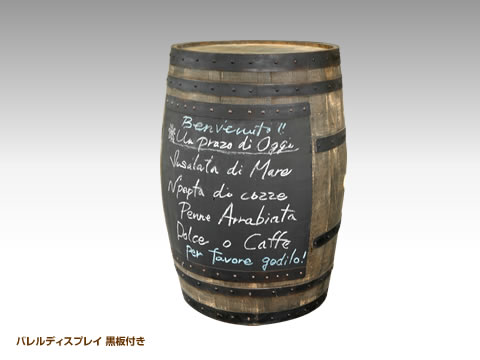 Benvenuto!!
※Un prazo di Oggi
Insalata di Mare
N'pepta di cozze
Penne Arrabiata
Dolce o Caffe
per favore godilo!
バレルディスプレイ 黒板付き